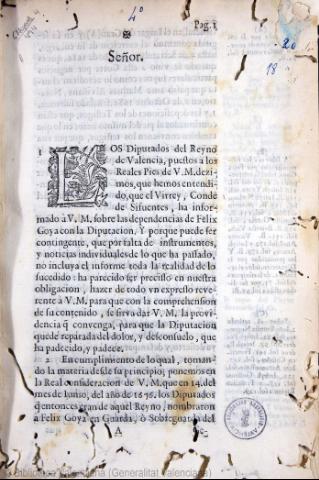 4º
Pag. 1
20
18
Señor.
1 LOS Diputados del Reyno
de Valencia, puestos a los
Reales Pies de V. M. dezi-
mos, que hemos entendi-
do, que el Virrey, Conde
de Sifuentes, ha infor-
mado à V. M. sobre las dependencias de Felix
Goya con la Diputacion. Y porque puede ser
contingente, que por falta de instrumentos,
y noticias individuales de lo que ha passado,
no incluya el informe toda la realidad de lo
sucedido: ha parecido ser preciso en nuestra
obligacion, hazer de todo vn expresso reve-
rente à V. M. para que con la comprehension
de su contenido, se sirva dàr V. M. la provi-
dencia q̃ convenga, para que la Diputacion
quede reparada del dolor, y desconsuelo, que
ha padecido, y padece.
2 En cumplimiento de lo qual, toman-
do la materia desde su principio; ponemos en
la Real consideracion de V. M. que en 14. del
mes de Iunio, del año de 1676. los Diputados
q̃ entonces eran de aquel Reyno, nombraron
a Felix Goya en Guarda, ò Sobreguarda del
A
Biblioteca Valenciana (Generalitat Valenciana)